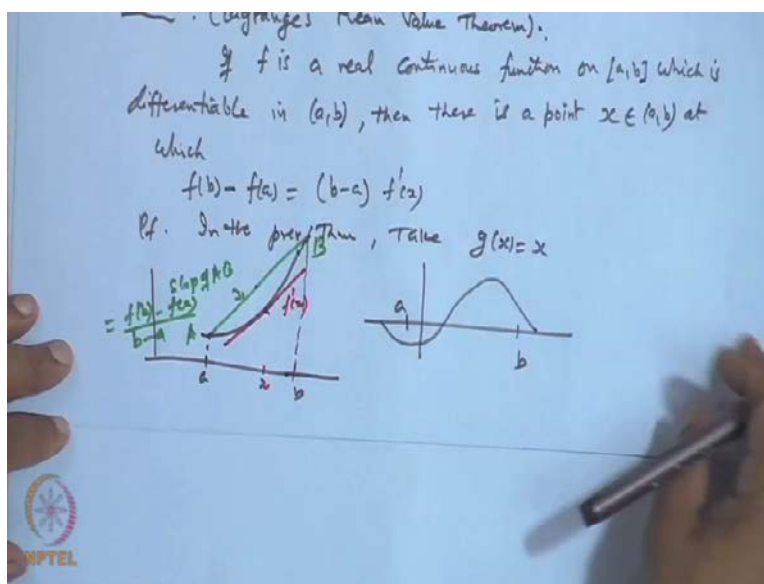 . (Lagrange's Mean Value Theorem).
If f is a real continuous function on [a,b] which is
differentiable in (a,b), then there is a point x ∈ (a,b) at
which
f(b) - f(a) = (b-a) f'(x)
Pf. In the prev Thm, Take g(x) = x
Slop of AB
= f(b) - f(a) / b-a
A
B
f'(x)
a
x
b
a
b
NPTEL